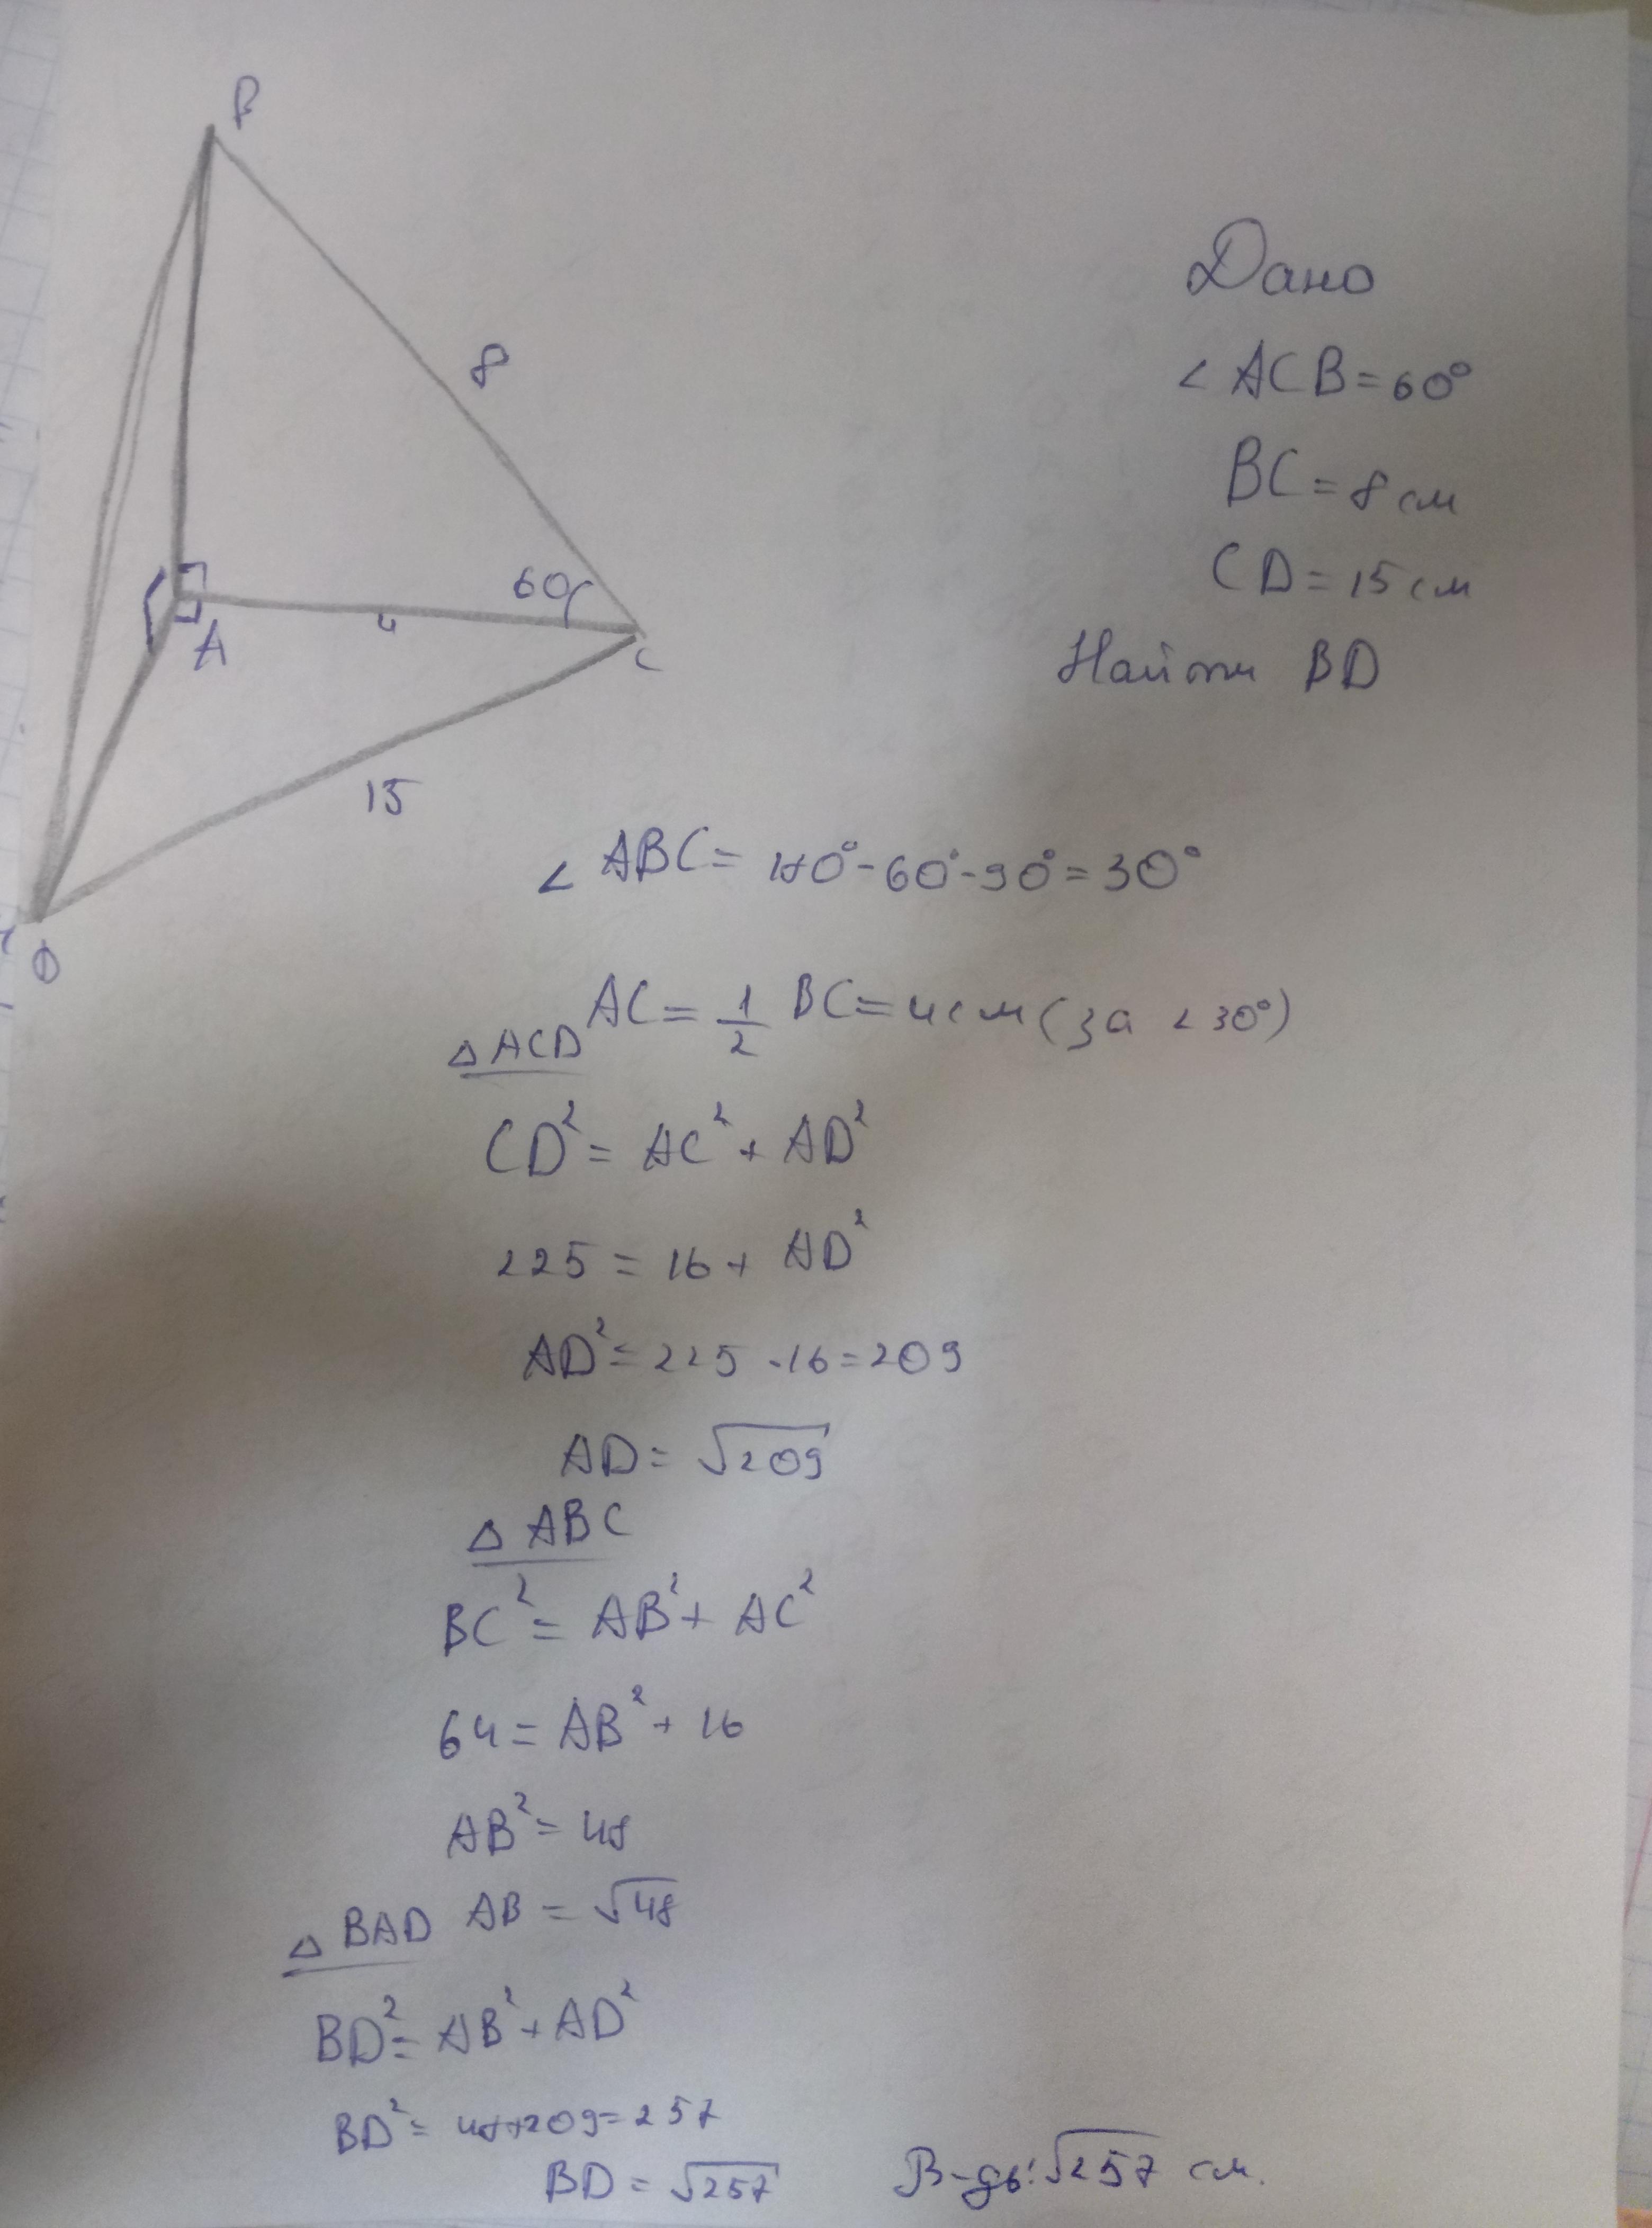 B
8
60
4
A
C
15
D
Дано
∠ ACB = 60°
BC = 8 см
CD = 15 см
Найти BD
∠ ABC = 180° - 60° - 90° = 30°
AC = 1/2 BC = 4 см (за ∠ 30°)
△ ACD
CD² = AC² + AD²
225 = 16 + AD²
AD² = 225 - 16 = 209
AD = √209
△ ABC
BC² = AB² + AC²
64 = AB² + 16
AB² = 48
△ BAD AB = √48
BD² = AB² + AD²
BD² = 48 + 209 = 257
BD = √257
В-дь: √257 см.